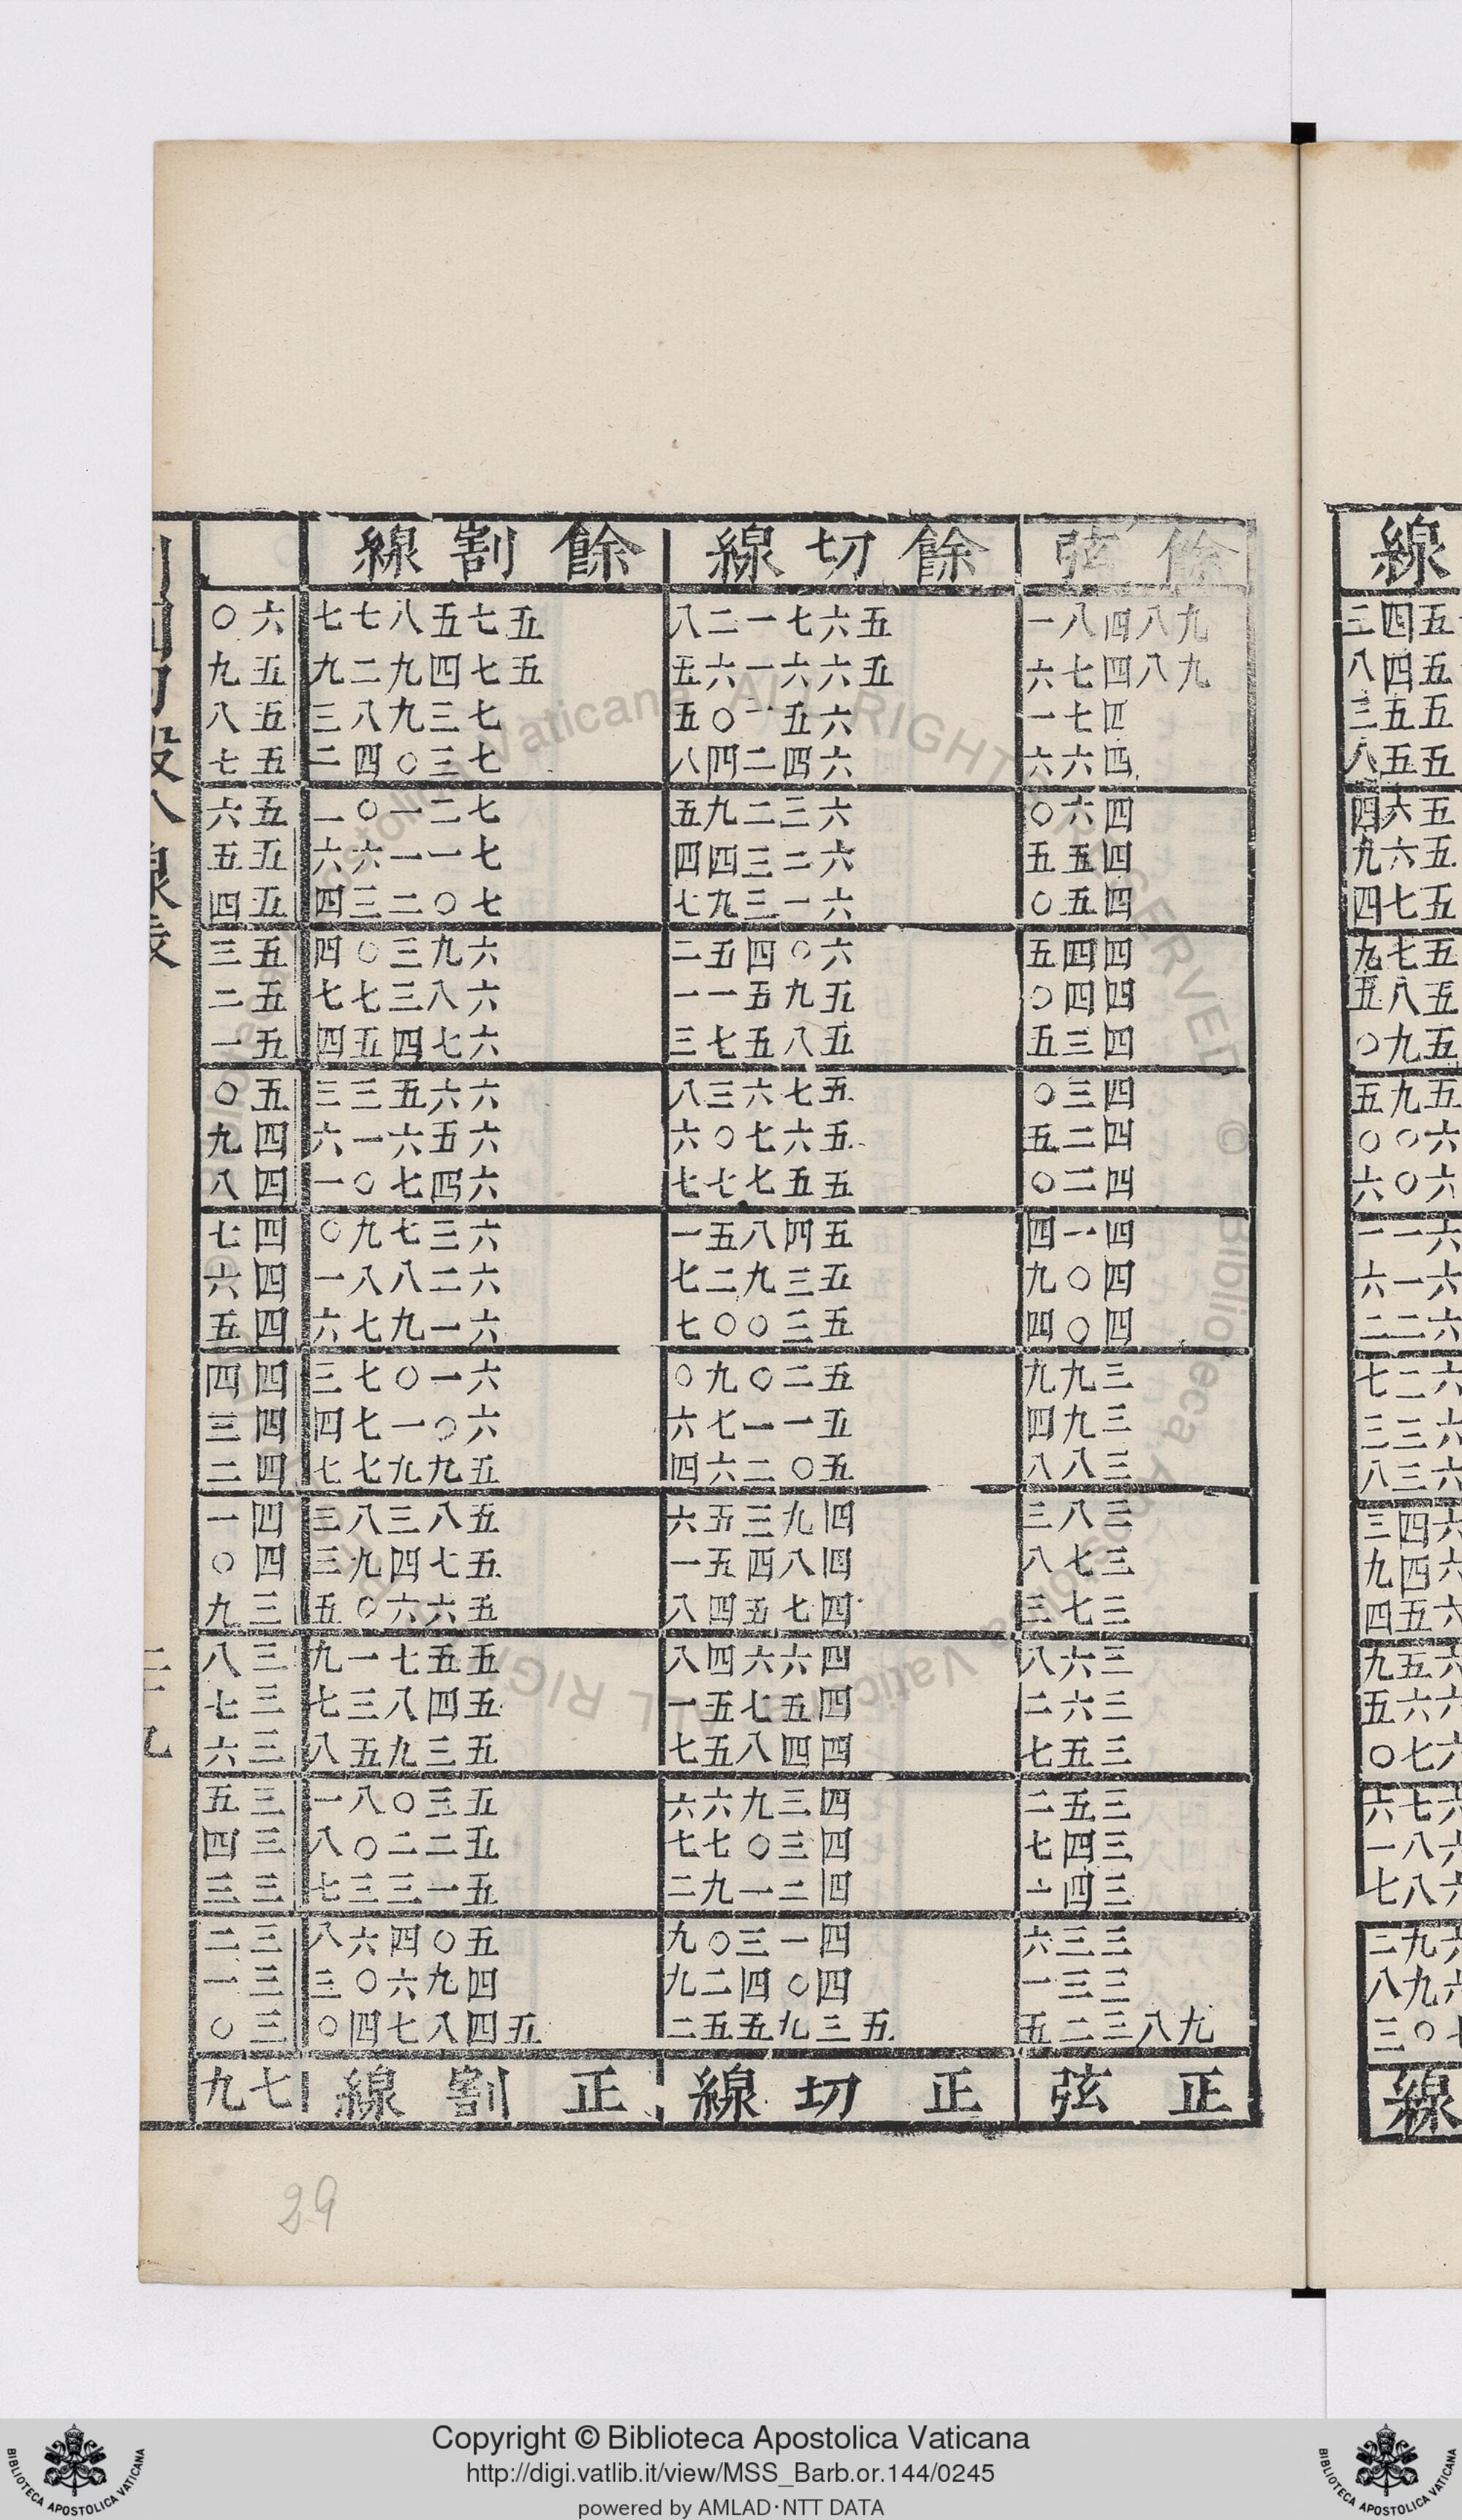 餘弦 餘切線 餘割線
九八四八一 五六七一二八 五七五八七七 六〇
九八四七六 五六六一六五 五七四九二九 五九
四七一 六五一〇五 七三九八三 五八
四六六 六四二四八 七三〇四二 五七
四六〇 六三二九五 七二一〇二 五六
四五五 六二三四四 七一一六六 五五
四五〇 六一三九七 七〇二三四 五四
四四五 六〇四五二 六九三〇四 五三
四四〇 五九五一一 六八三七七 五二
四三五 五八五七三 六七四五四 五一
四三〇 五七六三八 六六五三三 五〇
四二五 五六七〇六 六五六一六 四九
四二〇 五五七七七 六四七〇一 四八
四一四 五四八五一 六三七九〇 四七
四〇九 五三九二七 六二八八一 四六
四〇四 五三〇〇七 六一九七六 四五
三九九 五二〇九〇 六一〇七三 四四
三九四 五一一七六 六〇一七四 四三
三八八 五〇二六四 五九九七七 四二
三八三 四九三五六 五八三八三 四一
三七八 四八四五一 五七四九三 四〇
三七三 四七五四八 五六六〇五 三九
三六八 四六六四八 五五七一九 三八
三六二 四五七五一 五四八三七 三七
三五七 四四八五七 五三九五八 三六
三五二 四三九六六 五三〇八一 三五
三四七 四三〇七七 五二二〇八 三四
三四一 四二一九二 五一三三七 三三
三三六 四一三〇九 五〇四六八 三二
三三一 四〇四二九 四九六〇三 三一
九八三二五 五三九五五二 五四八七四〇 三〇
正弦 正切線 正割線 七九
29
Copyright © Biblioteca Apostolica Vaticana
http://digi.vatlib.it/view/MSS_Barb.or.144/0245
powered by AMLAD·NTT DATA